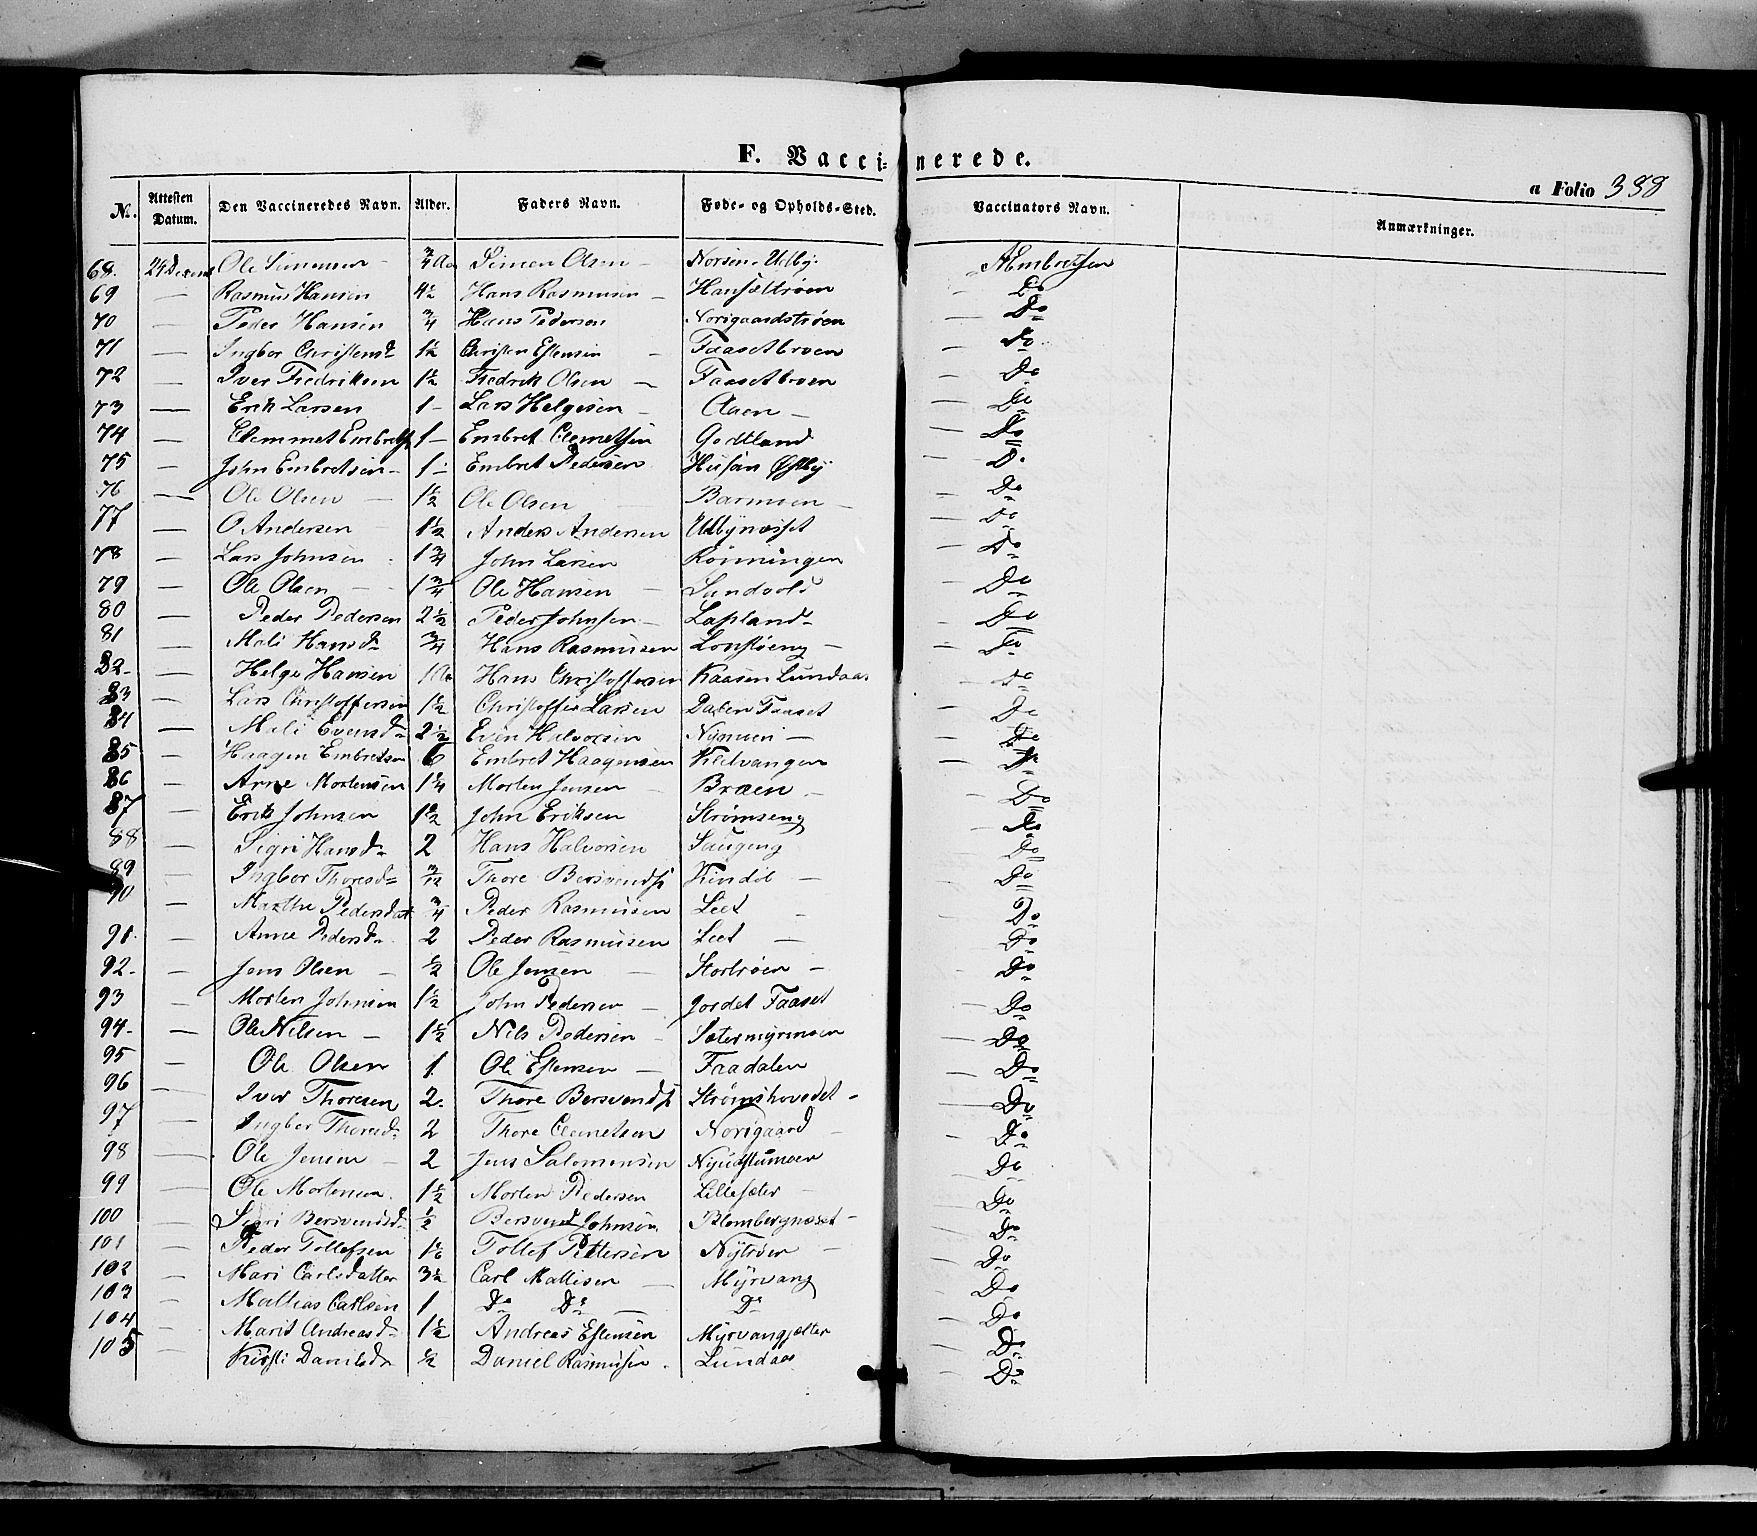 F. Vaccinerede.
a Folio 388
No. Attesten Datum. Den Vaccineredes Navn. Alder. Faders Navn. Føde- og Opholds-Sted. Vaccinators Navn. Anmærkninger.
68. 24 Ole Simensen - 3/4 Aar Simen Olsen - Udby.
69 — Rasmus Hansen 4 1/2 Hans Rasmusen — — Do
70 — Peder Hansen 3/4 Hans Pedersen Norigaardstrøen — Do
71 — Ingbor Christensd 1 1/2 Christen Estensen — Faasetbroen — Do
72 — Iver Fredriksen 1 1/2 Fredrik Olsen — Faasetbroen — Do
73 — Erik Larsen 1 - Lars Helgesen - Aaen — Do
74 — Clemmet Embrets 1 — Embret Clemetsen Godtland — Do
75 — John Embretsen - 1 - Embret Pedersen Husan Østby — Do
76 — Ole Olsen — 1 1/2 Ole Olsen Barmoen — Do
77 — O Andersen — 1 1/2 Anders Andersen Udbynæsset — Do
78 — Lars Johnsen 1 3/4 John Larsen Rønningen — Do
79 — Ole Olsen — 1 3/4 Ole Hansen — Sundvold — Do
80 — Peder Pedersen 2 1/2 Peder Johnsen — Lapland - — Do
81 — Mali Hansd 3/4 Hans Rasmusen Lonstøeng — — Do
82 - — Helge Hansen 1 Aar Hans Christoffersen Kaasen Lundaas — Do
83 — Lars Christoffersen 1 1/2 Christoffer Larsen Dalen Faaset — Do
84 — Mali Evensd 2 1/2 Even Halvorsen Nymoen — — Do
85 — Haagen Embretsen 6 Embret Haagensen Kildvangen — Do
86 — Arne Mortensen 1 1/4 Morten Jensen — Bræen — — Do
87 — Erik Johnsen 1 1/2 John Eriksen Strømseng — Do
88 — Sigri Hansd 2 Hans Halvorsen Saugeng — Do
89 — Ingbor Thoresd Thore Bersvends Kindil — — Do
90 — Marthe Pedersdat 3/4 Peder Rasmusen Leet — — Do
91. — Anne Pedersd 2 Peder Rasmusen Leet — — Do
92. — Jens Olsen — 1/2 Ole Jensen — Stortrøen — — Do
93 — Morten Johnsen 1 1/2 John Pedersen — Jordet Faaset — Do
94. — Ole Nilsen — 1 1/2 Nils Pedersen — Sætermyrmoen — Do
95 — Ole Olsen 1. Ole Estensen — Faadalen — Do
96 — Iver Thoresen 2. Thore Bersvends Strømshovedet - — Do
97 — Ingbor Thoresd 2 Thore Clemetsen Norigaard — — Do
98 — Ole Jensen — 2 Jens Salomonsen Nyudstumoen — Do
99 — Ole Mortensen. 1 1/2 Morten Pedersen Lillesæter — Do
100 — Sigri Bersvendsd 1/2 Bersvend Johnsen Blombergnæset - — Do
101 — Peder Tollefsen Tollef Pettersen Nytrøen — — Do
102 — Mari Carlsdatter 3 1/2 Carl Mattisen — Myrvang — Do
103 — Mattias Carlsen 1 Do Do — Do — Do
104 — Marit Andreasd 1 1/2 Andreas Estensen — Do
105 — Kirsti Danielsd 1/2 Daniel Rasmusen. Lundaas — Do